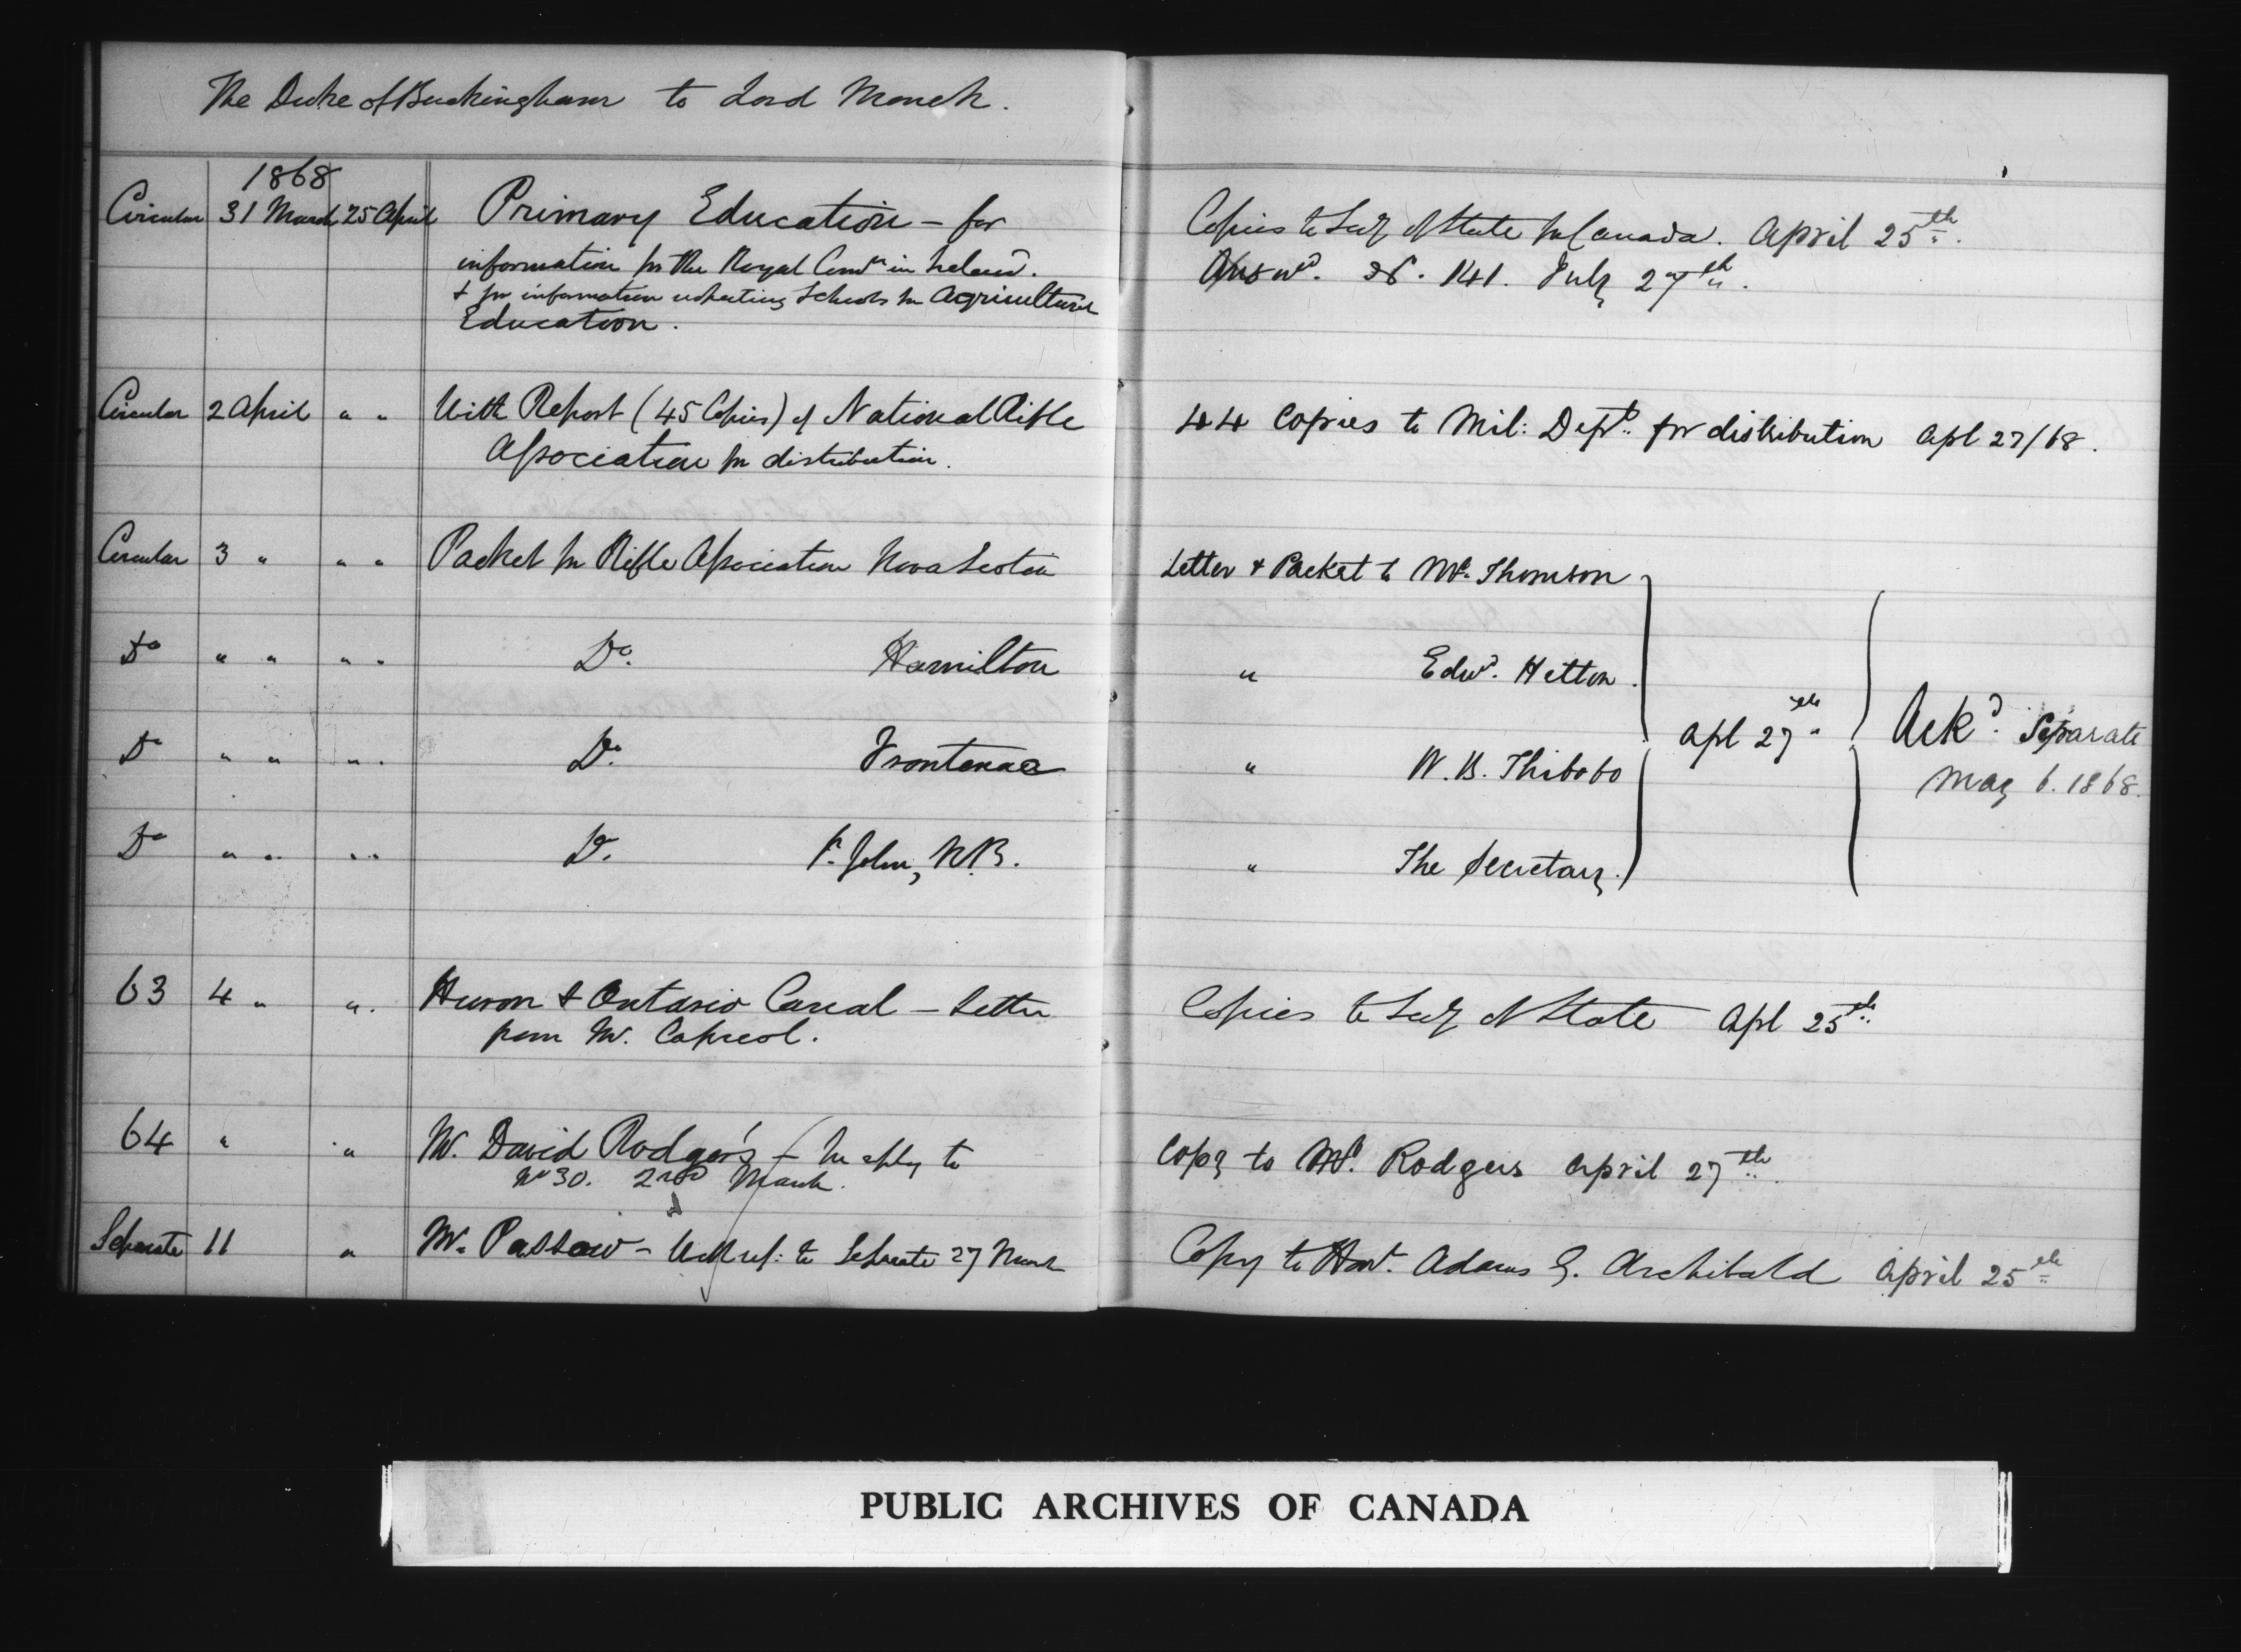 The Duke of Buckingham to Lord Monck.
1868
Circular 31 March 25 April Primary Education — for
information for the Royal Comn in Ireland.
& for information respecting Schools for Agricultural
Education.
Copies to Secy of State for Canada. April 25th.
Answd. No. 141. July 27th.
Circular 2 April " " With Report (45 Copies) of National Rifle
Association for distribution.
44 Copies to Mil: Dept. for distribution Apl 27/68.
Circular 3 " " " Packet for Rifle Association Nova Scotia
Letter & Packet to Mr. Thomson
Do " " " " Do. Hamilton
" Edwd. Hetton.
Do " " " " Do. Frontenac
" W. B. Thibobo
Apl 27th
Ackd. Separate
May 6. 1868.
Do " " " " Do. St. John, N.B.
" The Secretary.
63 4 " " Huron & Ontario Canal — Letter
from Mr. Capreol.
Copies to Secy of State Apl 25th
64 " " Mr. David Rodgers — In reply to
No 30. 2nd March.
Copy to Mr. Rodgers April 27th
Separate 11 " Mr. Passow — With ref: to Separate 27 March
Copy to Hon. Adams G. Archibald April 25th
PUBLIC ARCHIVES OF CANADA